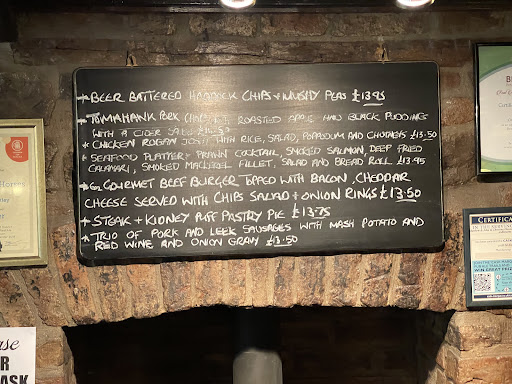 * BEER BATTERED HADDOCK CHIPS + MUSHY PEAS £13.95
* TOMAHAWK PORK CHOP ROASTED APPLE AND BLACK PUDDING
WITH A CIDER
* CHICKEN ROGAN JOSH WITH RICE, SALAD, POPADOUM AND CHUTNEYS £13.50
* SEAFOOD PLATTER, PRAWN COCKTAIL, SMOKED SALMON DEEP FRIED
CALAMARI, SMOKED MACKREL FILLET, SALAD AND BREAD ROLL £13.95
* 6oz GOURMET BEEF BURGER TOPPED WITH BACON, CHEDDAR
CHEESE SERVED WITH CHIPS SALAD + ONION RINGS £13.50
* STEAK + KIDNEY PUFF PASTRY PIE £13.75
* TRIO OF PORK AND LEEK SAUSAGES WITH MASH POTATO AND
RED WINE AND ONION GRAVY £13.50